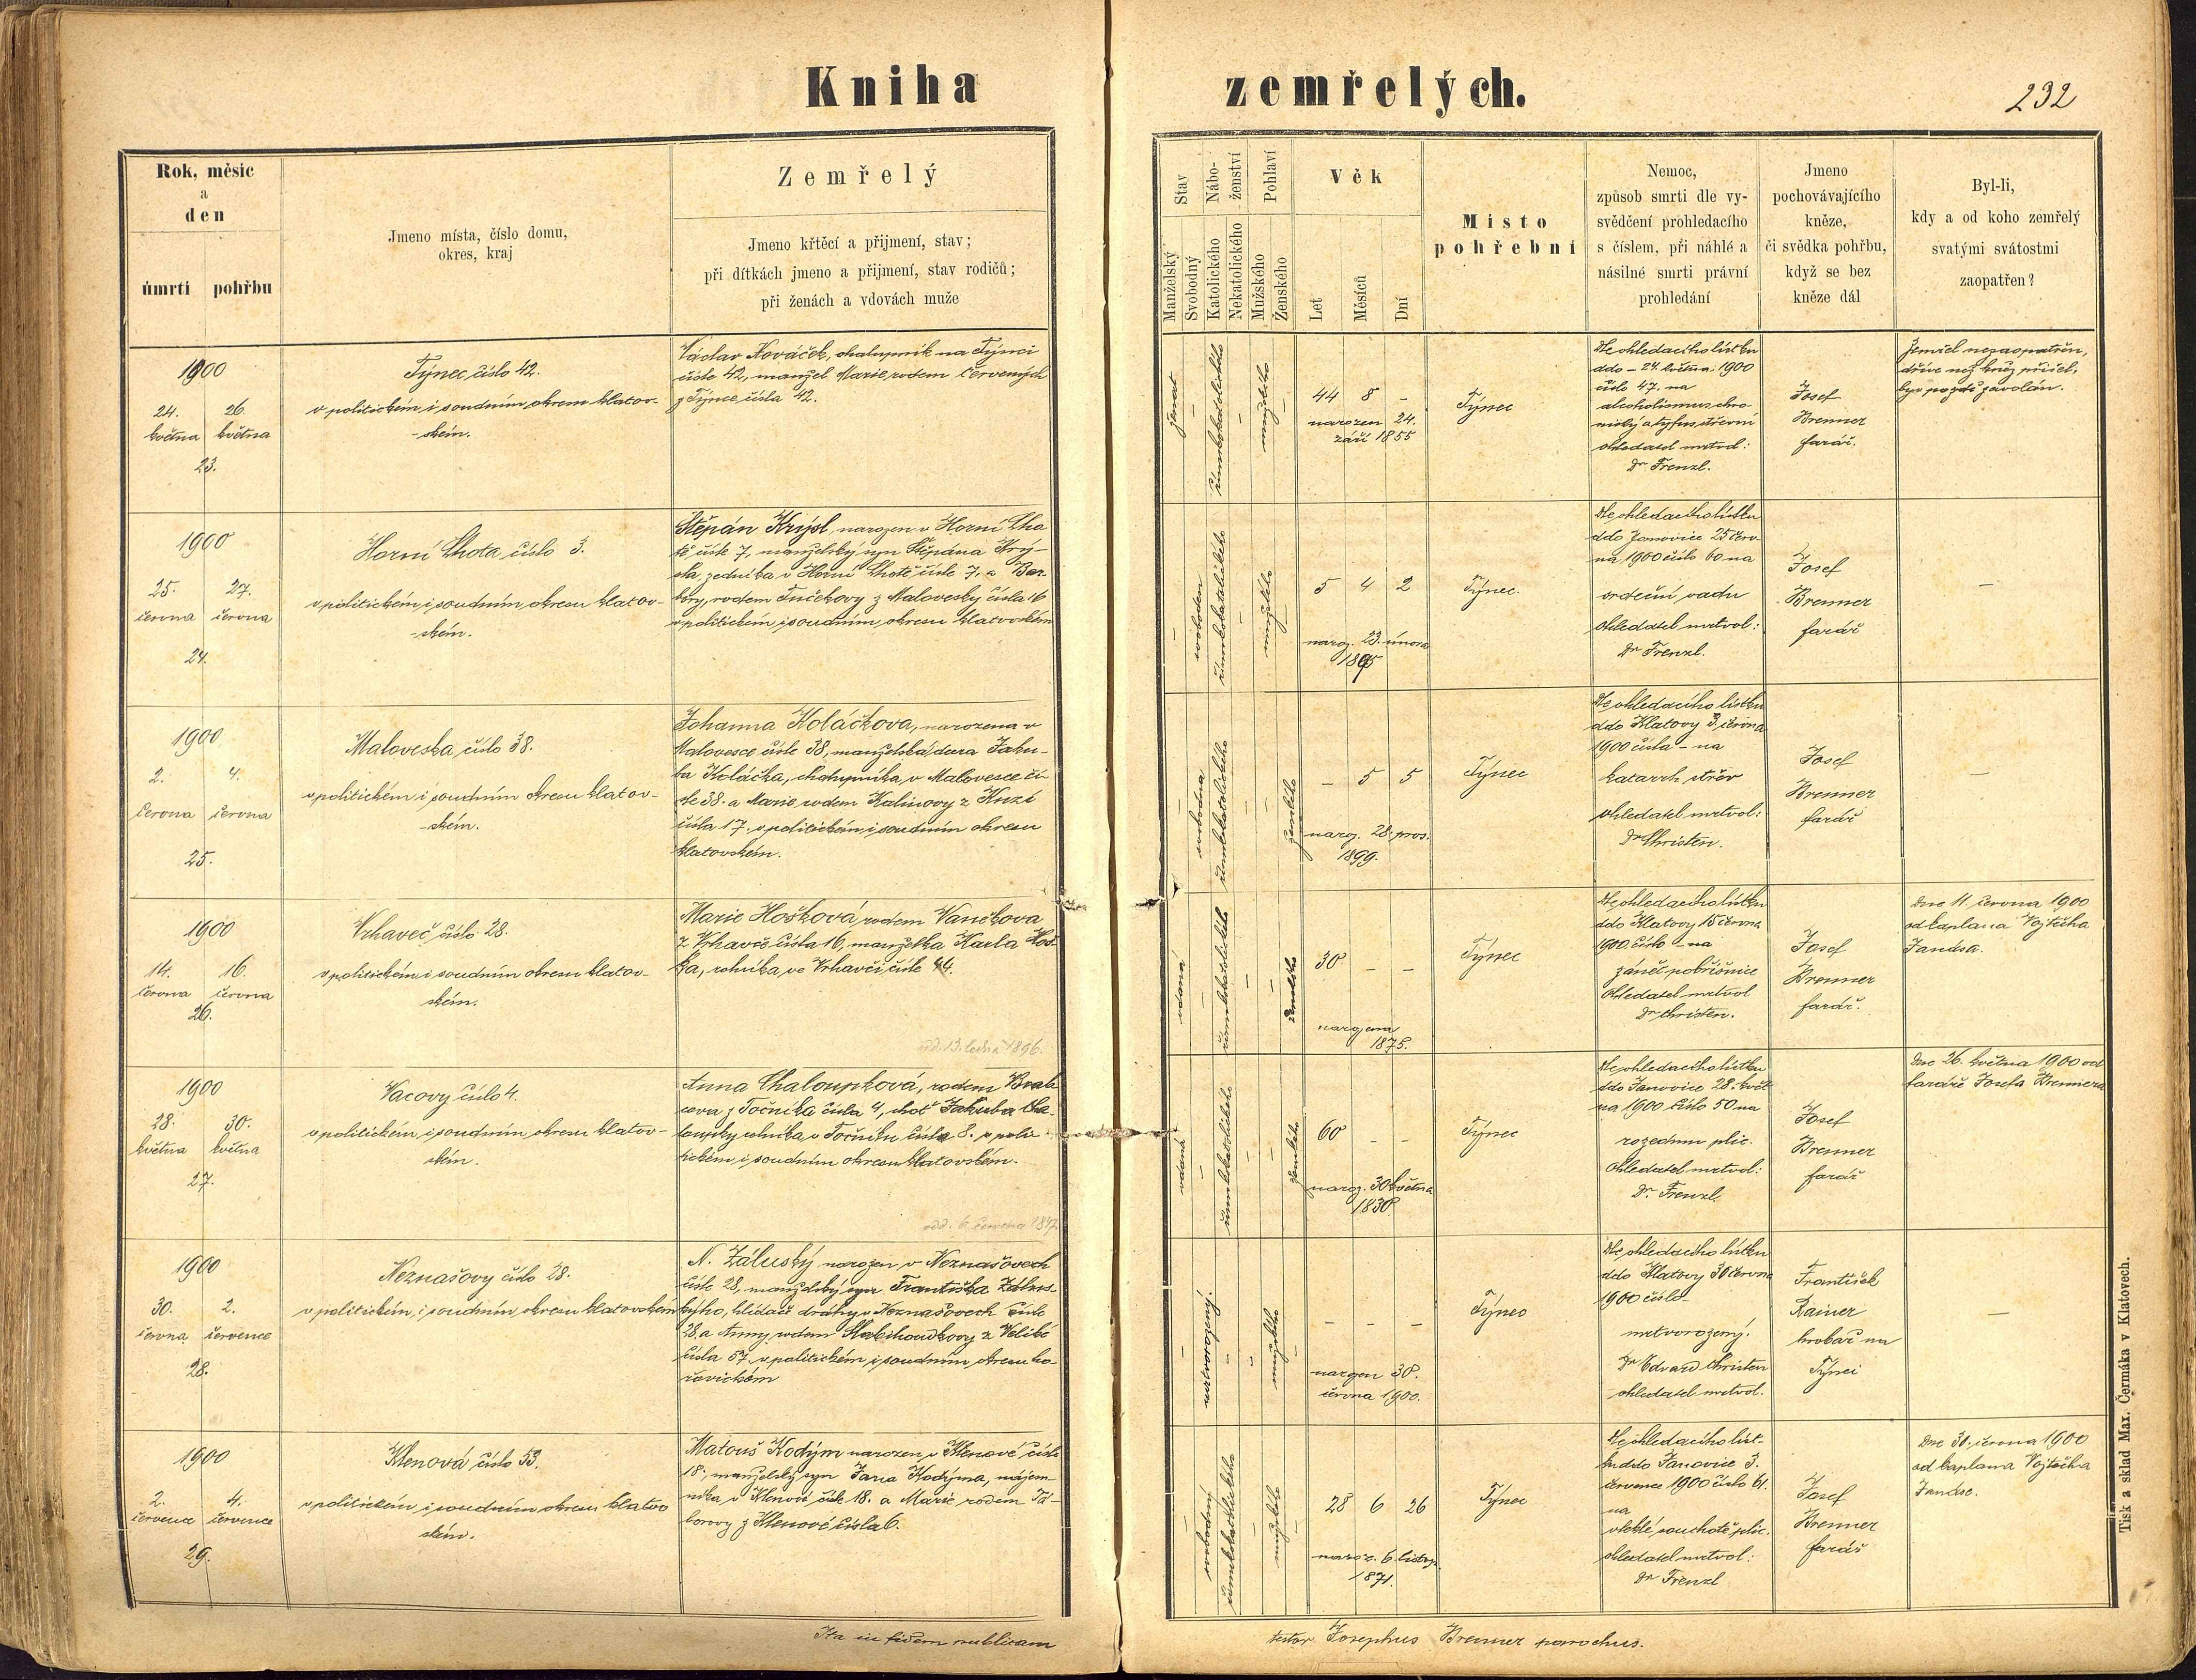 Kniha zemřelých.
232
Rok, měsíc
a
den
úmrtí pohřbu
Jmeno místa, číslo domu,
okres, kraj
Zemřelý
Jmeno křtěcí a přijmení, stav;
při dítkách jmeno a přijmení, stav rodičů;
při ženách a vdovách muže
Stav
Manželský
Svobodný
Nábo-
ženství
Katolického
Nekatolického
Pohlaví
Mužského
Ženského
Věk
Let
Měsíců
Dní
Místo
pohřební
Nemoc,
způsob smrti dle vy-
svědčení prohledacího
s číslem, při náhlé a
násilné smrti právní
prohledání
Jmeno
pochovávajícího
kněze,
či svědka pohřbu,
když se bez
kněze dál
Byl-li,
kdy a od koho zemřelý
svatými svátostmi
zaopatřen?
1900
24. 26.
května května
23.
Týnec číslo 42.
v politickém i soudním okresu klatov-
-ském.
Václav Nováček, chalupník na Týnci
číslo 42, manžel Marie, rodem Červených
z Týnce čísla 42.
ženat
římskokatolického
mužského
44 8 -
narozen 24.
září 1855
Týnec
Dle ohledacího lístku
ddo - 24. května 1900
číslo 47. na
alcoholismus chro-
nický a tyfus střevní
ohledatel mrtvol:
Dr Frenzl.
Josef
Brenner
farář.
Zemřel nezaopatřen,
dříve než kněz přišel,
byv pozdě zavolán.
1900
25. 27.
června června
24.
Horní Lhota číslo 3.
v politickém i soudním okresu klatov-
-ském.
Štěpán Krýsl, narozen v Horní Lho
tě čísle 7, manželský syn Štěpána Krý-
sla, zedníka v Horní Lhotě čísle 7, a Bar-
bory, rodem Tučkovy z Malovesky čísla 16
v politickém i soudním okresu klatovském
svoboden
římskokatolického
mužského
5 4 2
naroz. 23. února
1895
Týnec.
Dle ohledacího lístku
ddo Janovice 25 červ-
na 1900 číslo 60 na
srdeční vadu
ohledatel mrtvol:
Dr Frenzl.
Josef
Brenner
farář
-
1900
2. 4.
června června
25.
Maloveska číslo 38.
v politickém i soudním okresu klatov-
-ském.
Johanna Koláčkova, narozena v
Malovesce čísle 38, manželská dcera Jaku-
ba Koláčka, chalupníka v Malovesce čí-
sle 38. a Marie rodem Kalinovy z Kuzí
čísla 17. v politickém i soudním okresu
klatovském.
svobodna
římskokatolického
ženského
- 5 5
naroz. 28. pros.
1899.
Týnec
Dle ohledacího lístku
ddo Klatovy 3. června
1900 čísla - na
katarrh střev
ohledatel mrtvol:
Dr Christen.
Josef
Brenner
farář
-
1900
14. 16.
června června
26.
Vrhaveč číslo 28.
v politickém i soudním okresu klatov-
ském.
Marie Hošková rodem Vaněkova
z Vrhavče čísla 16, manželka Karla Hoš-
ka, rolníka ve Vrhavči čísle 44.
odd. 13. ledna 1896.
vdaná
římskokatolického
ženského
30 - -
narozena
1875.
Týnec
Dle ohledacího lístku
ddo Klatovy 15 června
1900. číslo - na
zánět pobřišnice
Ohledatel mrtvol
Dr Christen.
Josef
Brenner
farář.
Dne 11. června 1900
od kaplana Vojtěcha
Jandsa.
1900
28. 30.
května května
27.
Vacovy číslo 4.
v politickém i soudním okresu klatov-
ském.
Anna Chaloupková, rodem
z Točníka čísla 4, choť Jakuba Cha-
loupky rolníka v Točníku čísla 8. v poli-
tickém i soudním okresu klatovském.
odd. 6. července
vdaná
římskokatolického
ženského
60 - -
naroz. 30 května
1830
Týnec
Dle ohledacího lístku
ddo Janovice 28. květ
na 1900 číslo 50 na
rozedmu plic.
Ohledatel mrtvol:
Dr. Frenzl.
Josef
Brenner
farář
Dne 26. května 1900 od
faráře Josefa Brennera
1900
30. 2.
června července
28.
Neznašovy číslo 28.
v politickém i soudním okresu klatovském
N. Záluský narozen v Neznašovech
čísle 28, manželský syn Františka Zálus-
kýho, hlídače dráhy v Neznašovech čísle
28. a Anny, rodem Slabihoudkovy z Velíké
čísla 57. v politickém i soudním okresu ho-
řovickém
mrtvorozený.
mužského
- - -
narozen 30.
června 1900.
Týnec
Dle ohledacího lístku
ddo Klatovy 30 června
1900 číslo -
mrtvorozený.
Dr Edvard Christen
ohledatel mrtvol.
František
Rainer
hrobař na
Týnci
-
1900
2. 4.
července července
29.
Klenová číslo 53.
v politickém i soudním okresu klatov
ském.
Matouš Kodým narozen v Klenové čísle
18., manželský syn Jana Kodýma, nájem-
níka v Klenové čísle 18. a Marie rodem Tá-
borovy z Klenové čísla 6.
svobodný
římskokatolického
mužského
28 6 26
naroz. 6. listop.
1871.
Týnec
Dle ohledacího líst-
ku ddo Janovice 3.
července 1900 číslo 61.
na
vleklé souchotě plic.
ohledatel mrtvol:
Dr Frenzl
Josef
Brenner
farář
Dne 30. června 1900
od kaplana Vojtěcha
Jandse.
Ita in fidem publicam
testor Josephus Brenner parochus.
Tisk a sklad Max. Čermáka v Klatovech.